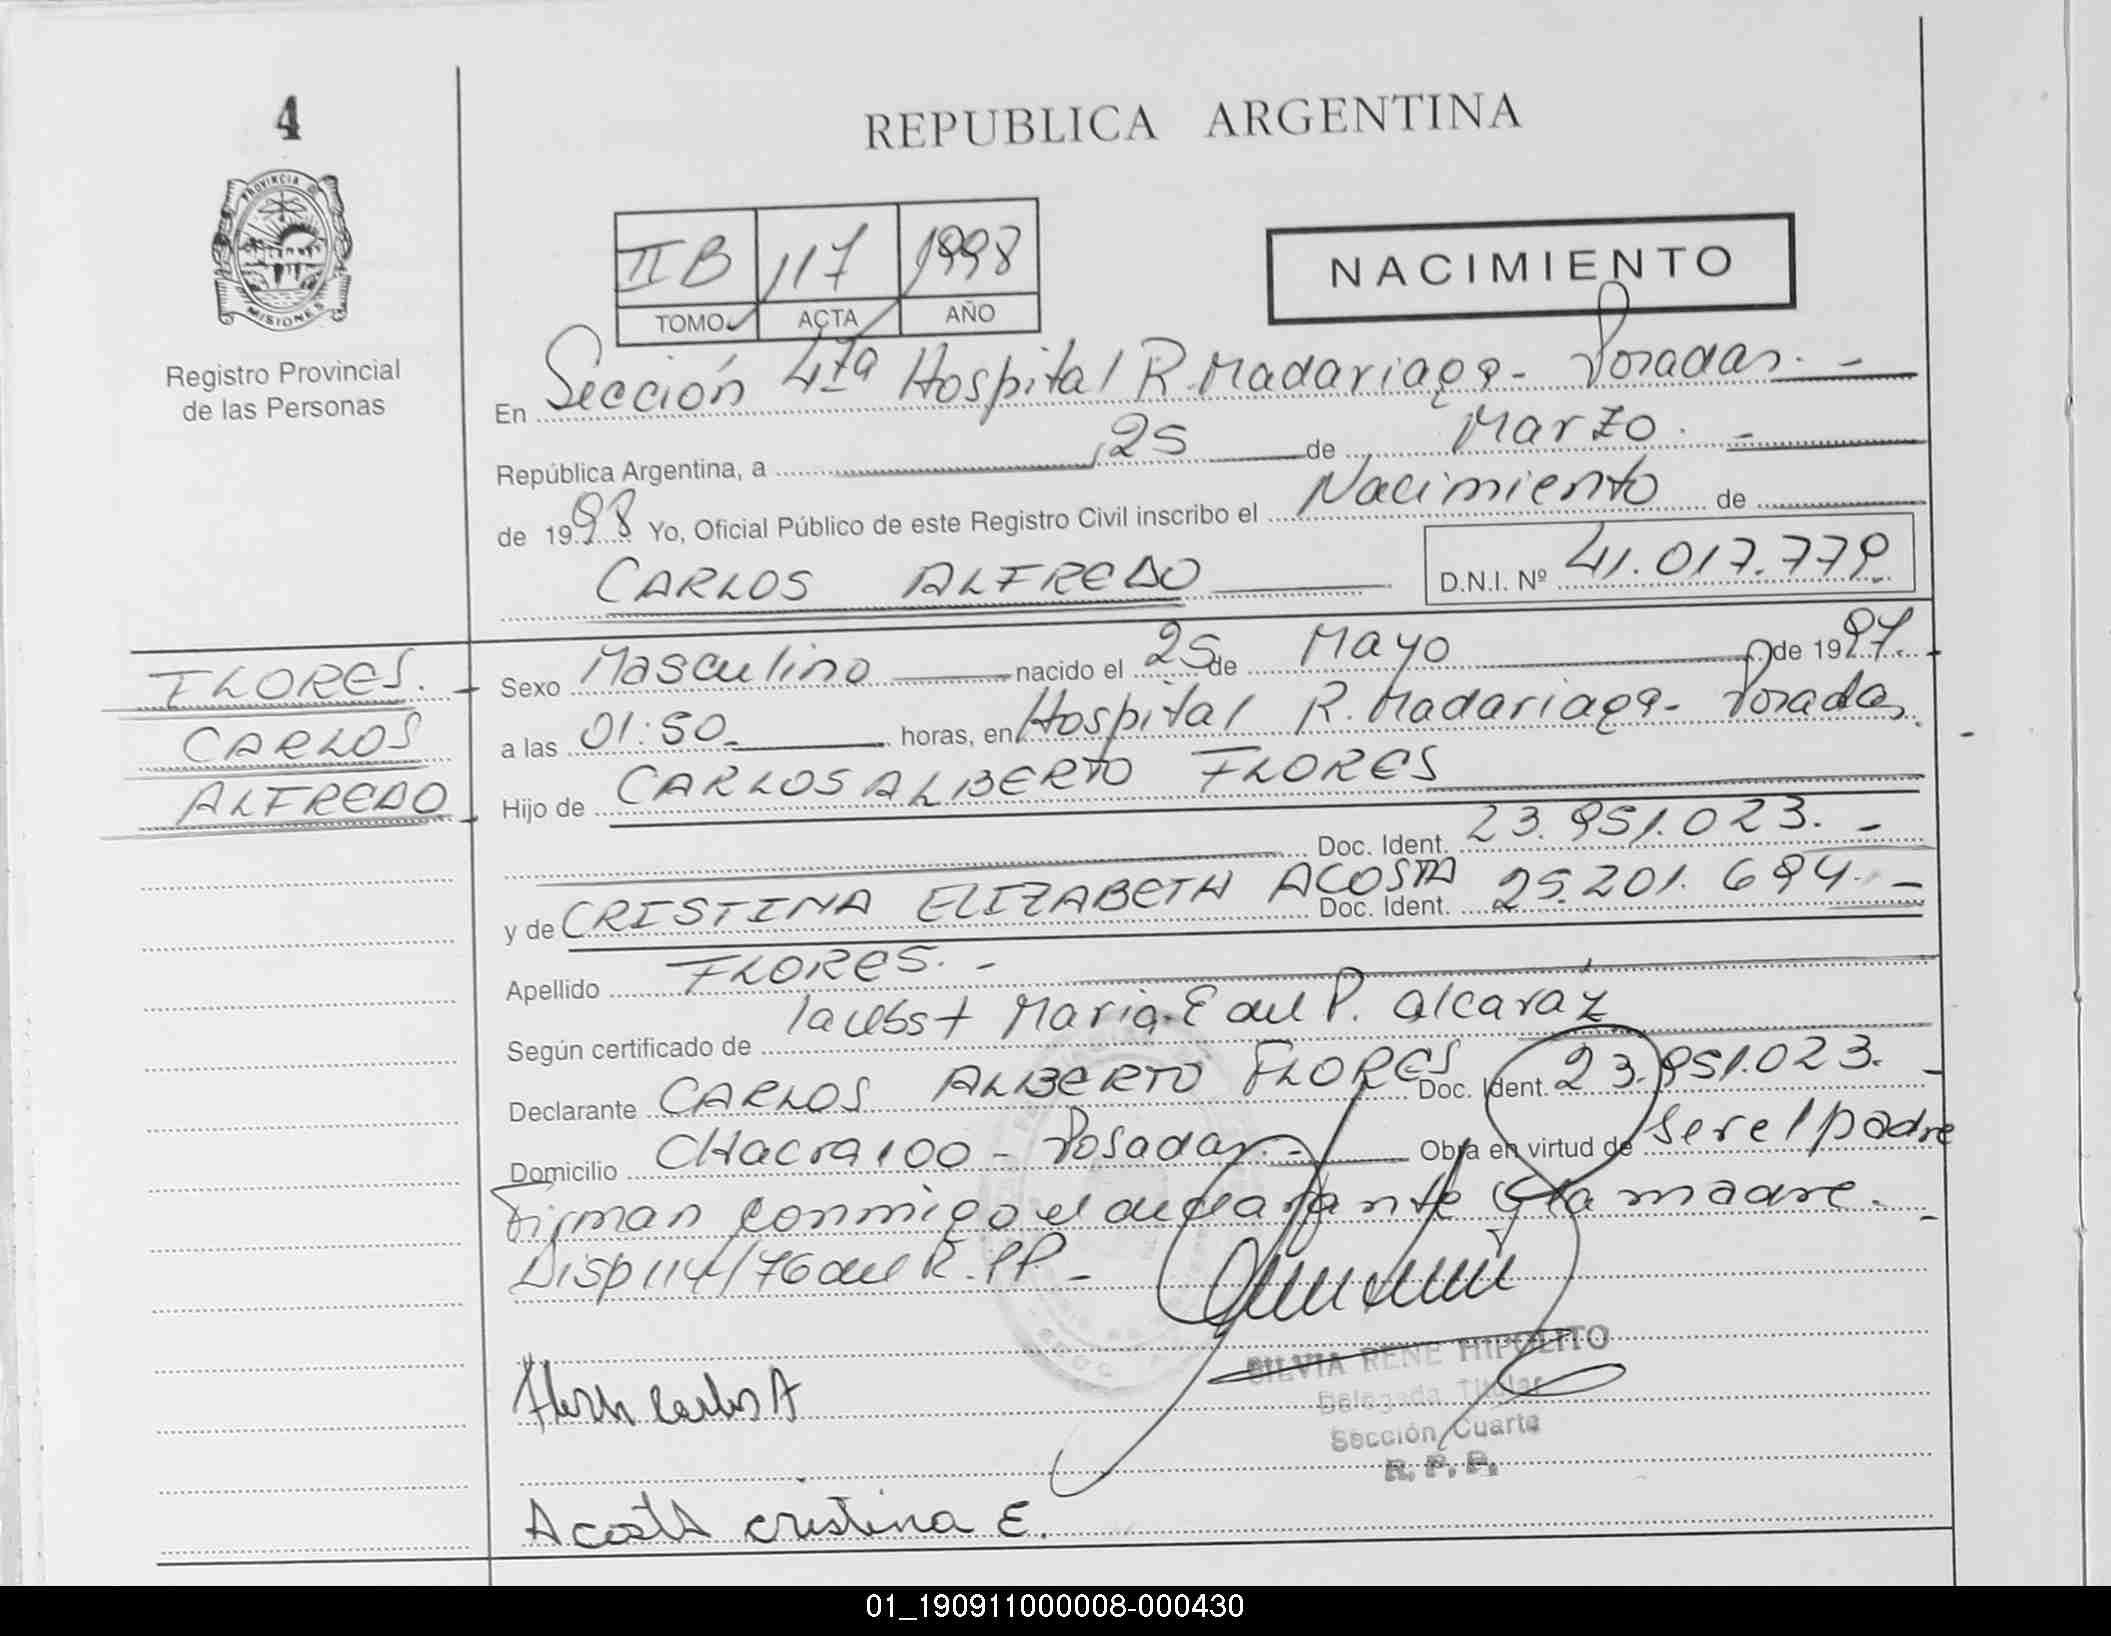 4
REPUBLICA ARGENTINA
PROVINCIA DE
MISIONES
Registro Provincial
de las Personas
II B 117 1998
TOMO ACTA AÑO
NACIMIENTO
En Sección 4ta Hospital R. Madariaga - Posadas. -
República Argentina, a 25 de Marzo. -
de 1998 Yo, Oficial Público de este Registro Civil inscribo el Nacimiento de
CARLOS ALFREDO D.N.I. Nº 41.017.779
FLORES. -
CARLOS
ALFREDO -
Sexo Masculino nacido el 25 de Mayo de 1997. -
a las 01:50 horas, en Hospital R. Madariaga - Posadas. -
Hijo de CARLOS ALBERTO FLORES
Doc. Ident. 23.951.023. -
y de CRISTINA ELIZABETH ACOSTA Doc. Ident. 25.201.694. -
Apellido FLORES. -
Según certificado de la Obst Maria E del P. Alcaráz
Declarante CARLOS ALBERTO FLORES Doc. Ident. 23.951.023. -
Domicilio CHacra 100 - Posadas. - Obra en virtud de ser el padre
Firman conmigo el declarante y la madre. -
Disp 114/76 del R.PP. -
SILVIA RENE HIPOLITO
Delegada Titular
Sección Cuarta
R. P. P.
Flores Carlos A
Acosta cristina E.
01_190911000008-000430